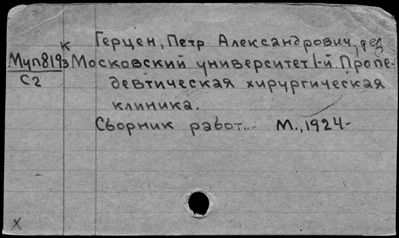 к Герцен, Петр Александрович, ред
Муп819з Московский университет 1-й. Пропе-
С2 девтическая хирургическая
клиника.
Сборник работ... М., 1924-
х